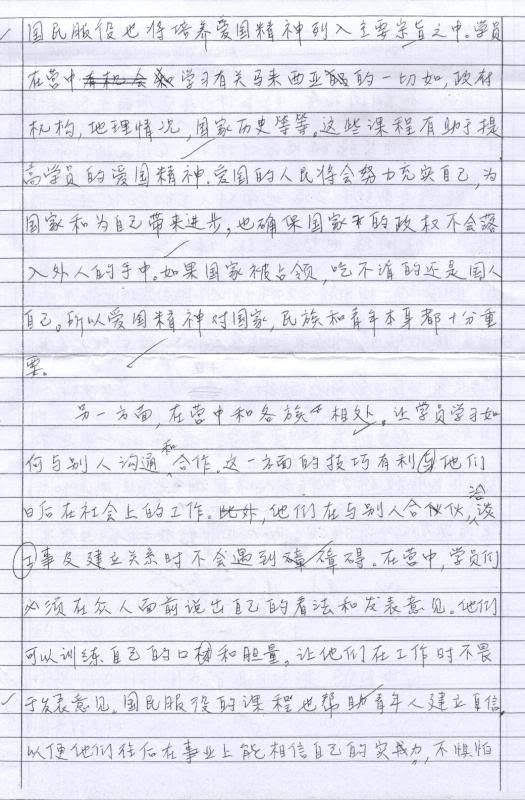 国民服役也将培养爱国精神列入主要宗旨之中。学员
在营中有机会学习有关马来西亚的一切如,政府
机构,地理情况,国家历史等等。这些课程有助于提
高学员的爱国精神。爱国的人民将会努力充实自己,为
国家和为自己带来进步,也确保国家的政权不会落
入外人的手中。如果国家被占领,吃不消的还是国人
自己。所以爱国精神对国家,民族和青年本身都十分重
要。
另一方面,在营中和各族相处,让学员学习如
何与别人沟通和合作。这一方面的技巧有利与他们
日后在社会上的工作。此外,他们在与别人合伙,洽谈
工事及建立关系时不会遇到障碍。在营中,学员们
必须在众人面前说出自己的看法和发表意见。他们
可以训练自己的口材和胆量,让他们在工作时不畏
于发表意见。国民服役的课程也帮助青年人建立自信,
以便他们往后在事业上能相信自己的实力,不惧怕